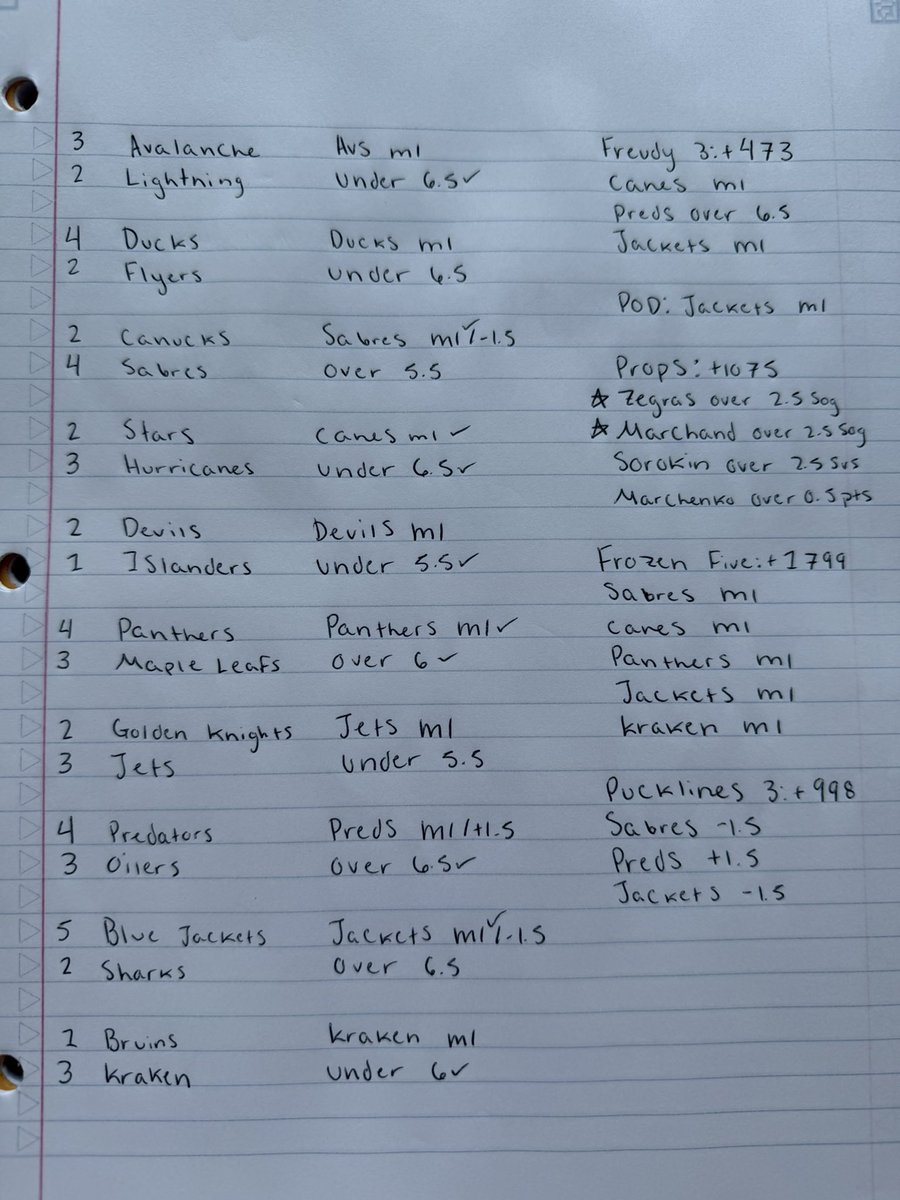 3 Avalanche Avs ml
2 Lightning under 6.5✓
4 Ducks Ducks ml
2 Flyers under 6.5
2 Canucks Sabres ml✓/-1.5
4 Sabres over 5.5
2 Stars Canes ml ✓
3 Hurricanes under 6.5✓
2 Devils Devils ml
1 Islanders under 5.5✓
4 Panthers Panthers ml✓
3 Maple Leafs over 6 ✓
2 Golden Knights Jets ml
3 Jets under 5.5
4 Predators Preds ml/+1.5
3 Oilers over 6.5✓
5 Blue Jackets Jackets ml✓/-1.5
2 Sharks over 6.5
2 Bruins kraken ml
3 kraken under 6✓
Freudy 3:+473
Canes ml
Preds over 6.5
Jackets ml
POD: Jackets ml
Props: +1075
☆ Zegras over 2.5 Sog
☆ Marchand over 2.5 Sog
Sorokin over 2.5 Svs
Marchenko over 0.5 pts
Frozen Five:+1799
Sabres ml
canes ml
Panthers ml
Jackets ml
kraken ml
Pucklines 3:+998
Sabres -1.5
Preds +1.5
Jackets -1.5